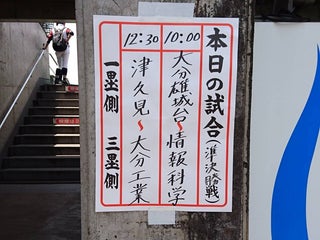 本日の試合(準決勝戦)
10:00
大分雄城台~情報科学
12:30
津久見~大分工業
一塁側 三塁側